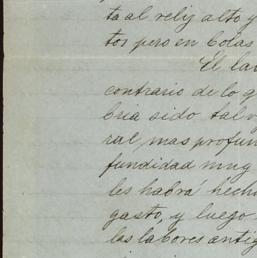 ta al reliz alto y
tos pero en Colas
El la
contrario de lo q
bria sido tal v
ral, mas profun
fundidad muy
les habrá hecho
gasto, y luego
las labores antig